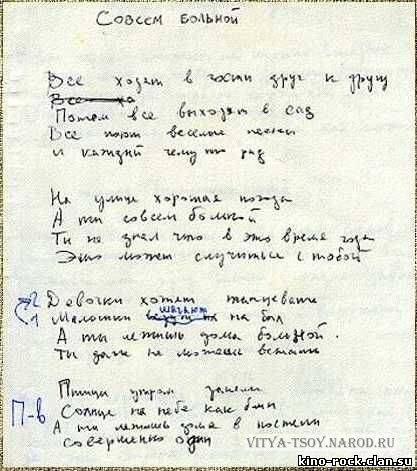 Совсем больной
Все ходят в гости друг к другу
Все хо
Потом все выходят в сад
Все поют веселые песни
и каждый чему то рад
На улице хорошая погода
А ты совсем больной
Ты не знал что в это время года
Это может случиться с тобой
2 Девочки хотят танцевать
1 Мальчики ведут их шагают на бал
А ты лежишь дома больной.
Ты даже не можешь встать
Птицы утром запели
П-в Солнце на небе как блин
А ты лежишь дома в постели
совершенно один
VITYA-TSOY.NAROD.RU
kino-rock.clan.su